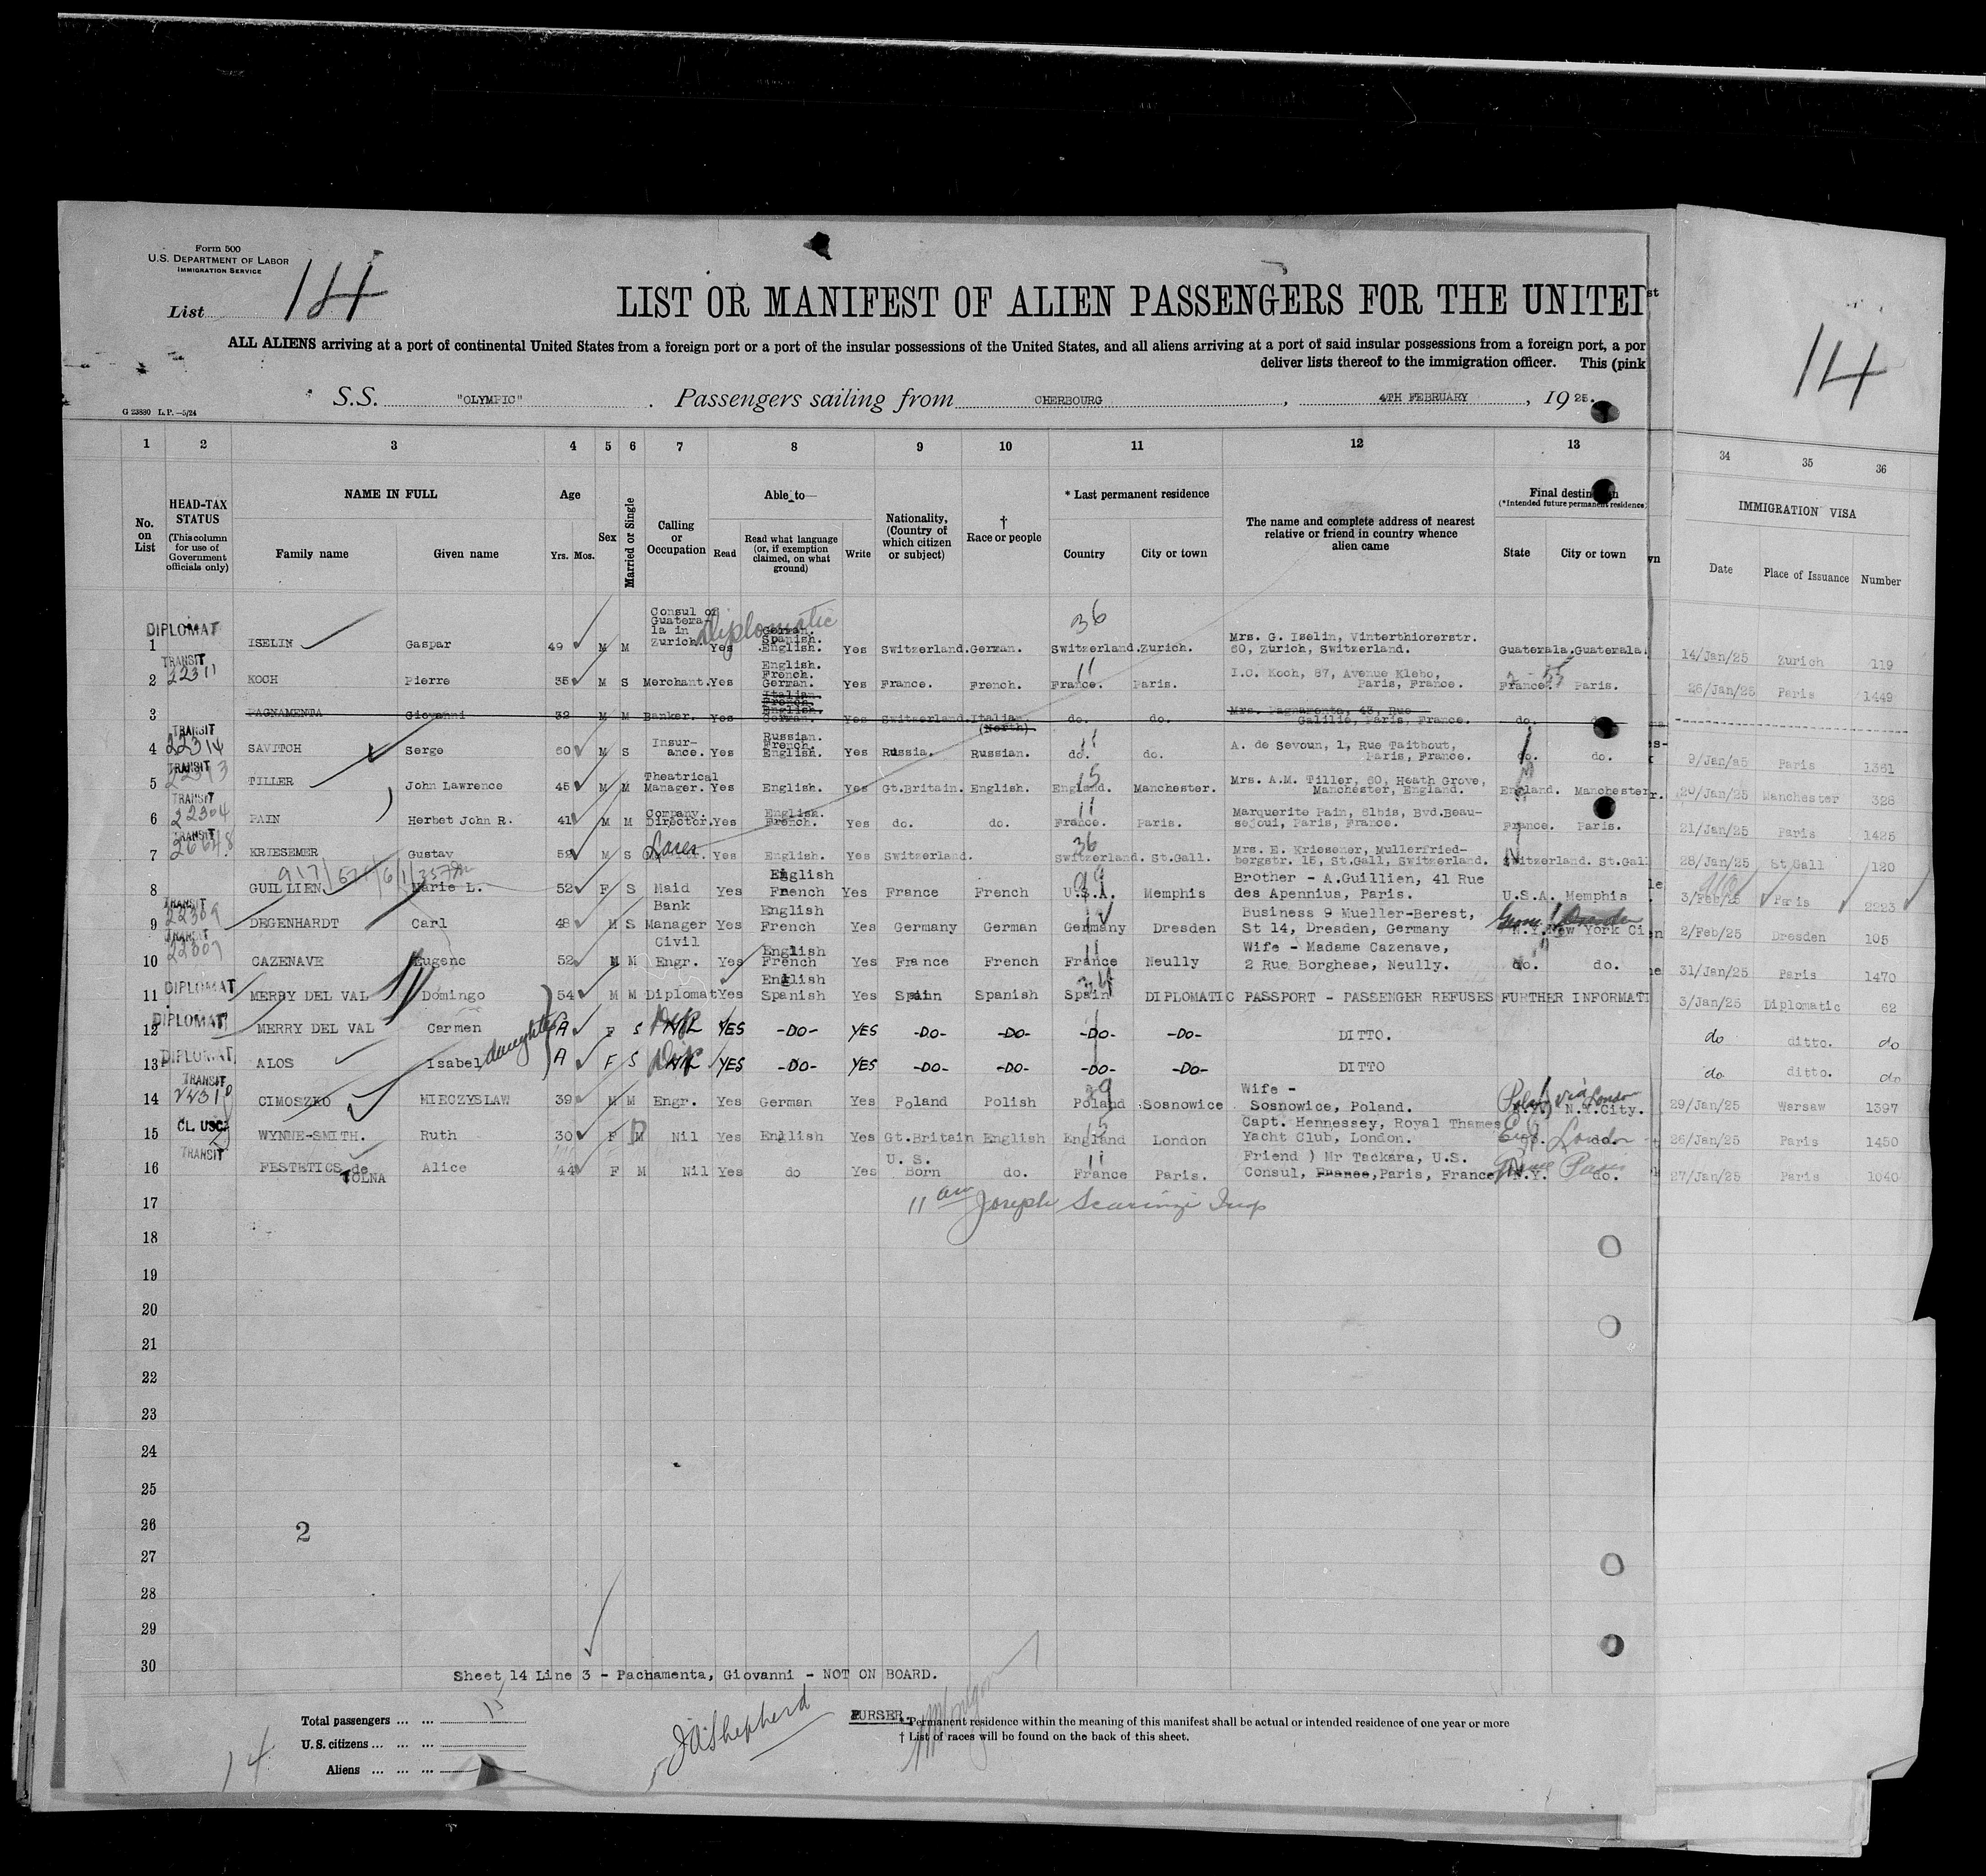 Form 500
U.S. DEPARTMENT OF LABOR
IMMIGRATION SERVICE
List 14
LIST OR MANIFEST OF ALIEN PASSENGERS FOR THE UNITE
st
14
ALL ALIENS arriving at a port of continental United States from a foreign port or a port of the insular possessions of the United States, and all aliens arriving at a port of said insular possessions from a foreign port, a por
deliver lists thereof to the immigration officer. This (pink
S.S. "OLYMPIC". Passengers sailing from CHERBOURG, 4TH FEBRUARY, 1925.
G 23880 L.P.—5/24
1 2 3 4 5 6 7 8 9 10 11 12 13 34 35 36
No. on List
HEAD-TAX STATUS (This column for use of Government officials only)
NAME IN FULL
Family name Given name
Age
Yrs. Mos.
Sex
Married or Single
Calling or Occupation
Able to—
Read
Read what language (or, if exemption claimed, on what ground)
Write
Nationality, (Country of which citizen or subject)
† Race or people
* Last permanent residence
Country City or town
The name and complete address of nearest relative or friend in country whence alien came
Final destin
(*Intended future permanent residence)
State City or town
IMMIGRATION VISA
Date Place of Issuance Number
DIPLOMAT 1 ISELIN Gaspar 49 M M Consul of Guatema-la in Zurich. diplomatic Yes German. Spanish. English. Yes Switzerland. German. 36 Switzerland. Zurich. Mrs. G. Iselin, Vinterthiorerstr. 60, Zurich, Switzerland. Guatemala. Guatemala. 14/Jan/25 Zurich 119
TRANSIT 22311 2 KOCH Pierre 35 M S Merchant. Yes English. French. German. Yes France. French. 11 France. Paris. I.C. Koch, 87, Avenue Klebo, Paris, France. France. Paris. 26/Jan/25 Paris 1449
3 PAGNAMENTA Giovanni 32 M M Banker. Yes Italian. French. English. German. Yes Switzerland. Italian (North) do. do. Mrs. Pagnamenta, 43, Rue Galilie, Paris, France. do.
TRANSIT 22314 4 SAVITCH Serge 60 M S Insur-ance. Yes Russian. French. English. Yes Russia. Russian. 11 do. do. A. de Sevoun, 1, Rue Taitbout, Paris, France. do. do. 9/Jan/25 Paris 1361
TRANSIT 5 TILLER John Lawrence 45 M M Theatrical Manager. Yes English. Yes Gt.Britain. English. 15 England. Manchester. Mrs. A.M. Tiller, 60, Heath Grove, Manchester, England. England. Manchester. 20/Jan/25 Manchester 328
TRANSIT 22304 6 PAIN Herbet John R. 41 M M Company. Director. Yes English. French. Yes do. do. 11 France. Paris. Marguerite Pain, 81bis, Bvd.Beau-sejoui, Paris, France. France. Paris. 21/Jan/25 Paris 1425
TRANSIT 7 KRIESEMER Gustav 52 M S Yes English. Yes Switzerland. 36 Switzerland. St.Gall. Mrs. E. Kriesemer, Mullerfried-bergstr. 15, St.Gall, Switzerland. Switzerland. St.Gall 28/Jan/25 St Gall 120
8 GUILLIEN Marie L. 52 F S Maid Yes English French Yes France French 99 U.S.A. Memphis Brother - A.Guillien, 41 Rue des Apennius, Paris. U.S.A. Memphis 3/Feb/25 Paris 2223
TRANSIT 22309 9 DEGENHARDT Carl 48 M S Bank Manager Yes English French Yes Germany German Germany Dresden Business 9 Mueller-Berest, St 14, Dresden, Germany N.Y. New York Ci 2/Feb/25 Dresden 105
TRANSIT 22307 10 CAZENAVE Eugene 52 M M Civil Engr. Yes English French Yes France French 11 France Neully Wife - Madame Cazenave, 2 Rue Borghese, Neully. do. do. 31/Jan/25 Paris 1470
DIPLOMAT 11 MERRY DEL VAL Domingo 54 M M Diplomat Yes English Spanish Yes Spain Spanish 34 Spain DIPLOMATIC PASSPORT - PASSENGER REFUSES FURTHER INFORMATI 3/Jan/25 Diplomatic 62
DIPLOMAT 12 MERRY DEL VAL Carmen daughter A F S Dip YES -DO- YES -DO- -DO- -DO- -DO- DITTO. do ditto. do
DIPLOMAT 13 ALOS Isabel A F S Dip YES -DO- YES -DO- -DO- -DO- -DO- DITTO do ditto. do
TRANSIT 14 CIMOSZKO MIECZYSLAW 39 M M Engr. Yes German Yes Poland Polish Poland Sosnowice Wife - Sosnowice, Poland. Poland via London N.Y.City. 29/Jan/25 Warsaw 1397
CL. USC. 15 WYNNE-SMITH. Ruth 30 F M Nil Yes English Yes Gt.Britain English 15 England London Capt. Hennessey, Royal Thames Yacht Club, London. Eng. London 26/Jan/25 Paris 1450
TRANSIT 16 FESTETICS de TOLNA Alice 44 F M Nil Yes do Yes U. S. Born do. 11 France Paris. Friend ) Mr Tackara, U.S. Consul, France, Paris, France N.Y. Paris do. 27/Jan/25 Paris 1040
17 11 am Joseph Scaringi Insp
18
19
20
21
22
23
24
25
26 2
27
28
29
30
Sheet 14 Line 3 - Pachamenta, Giovanni - NOT ON BOARD.
Total passengers ... ... 15
U.S. citizens ... ... ...
Aliens ... ... ...
14
JAShepherd
PURSER.
* Permanent residence within the meaning of this manifest shall be actual or intended residence of one year or more
† List of races will be found on the back of this sheet.